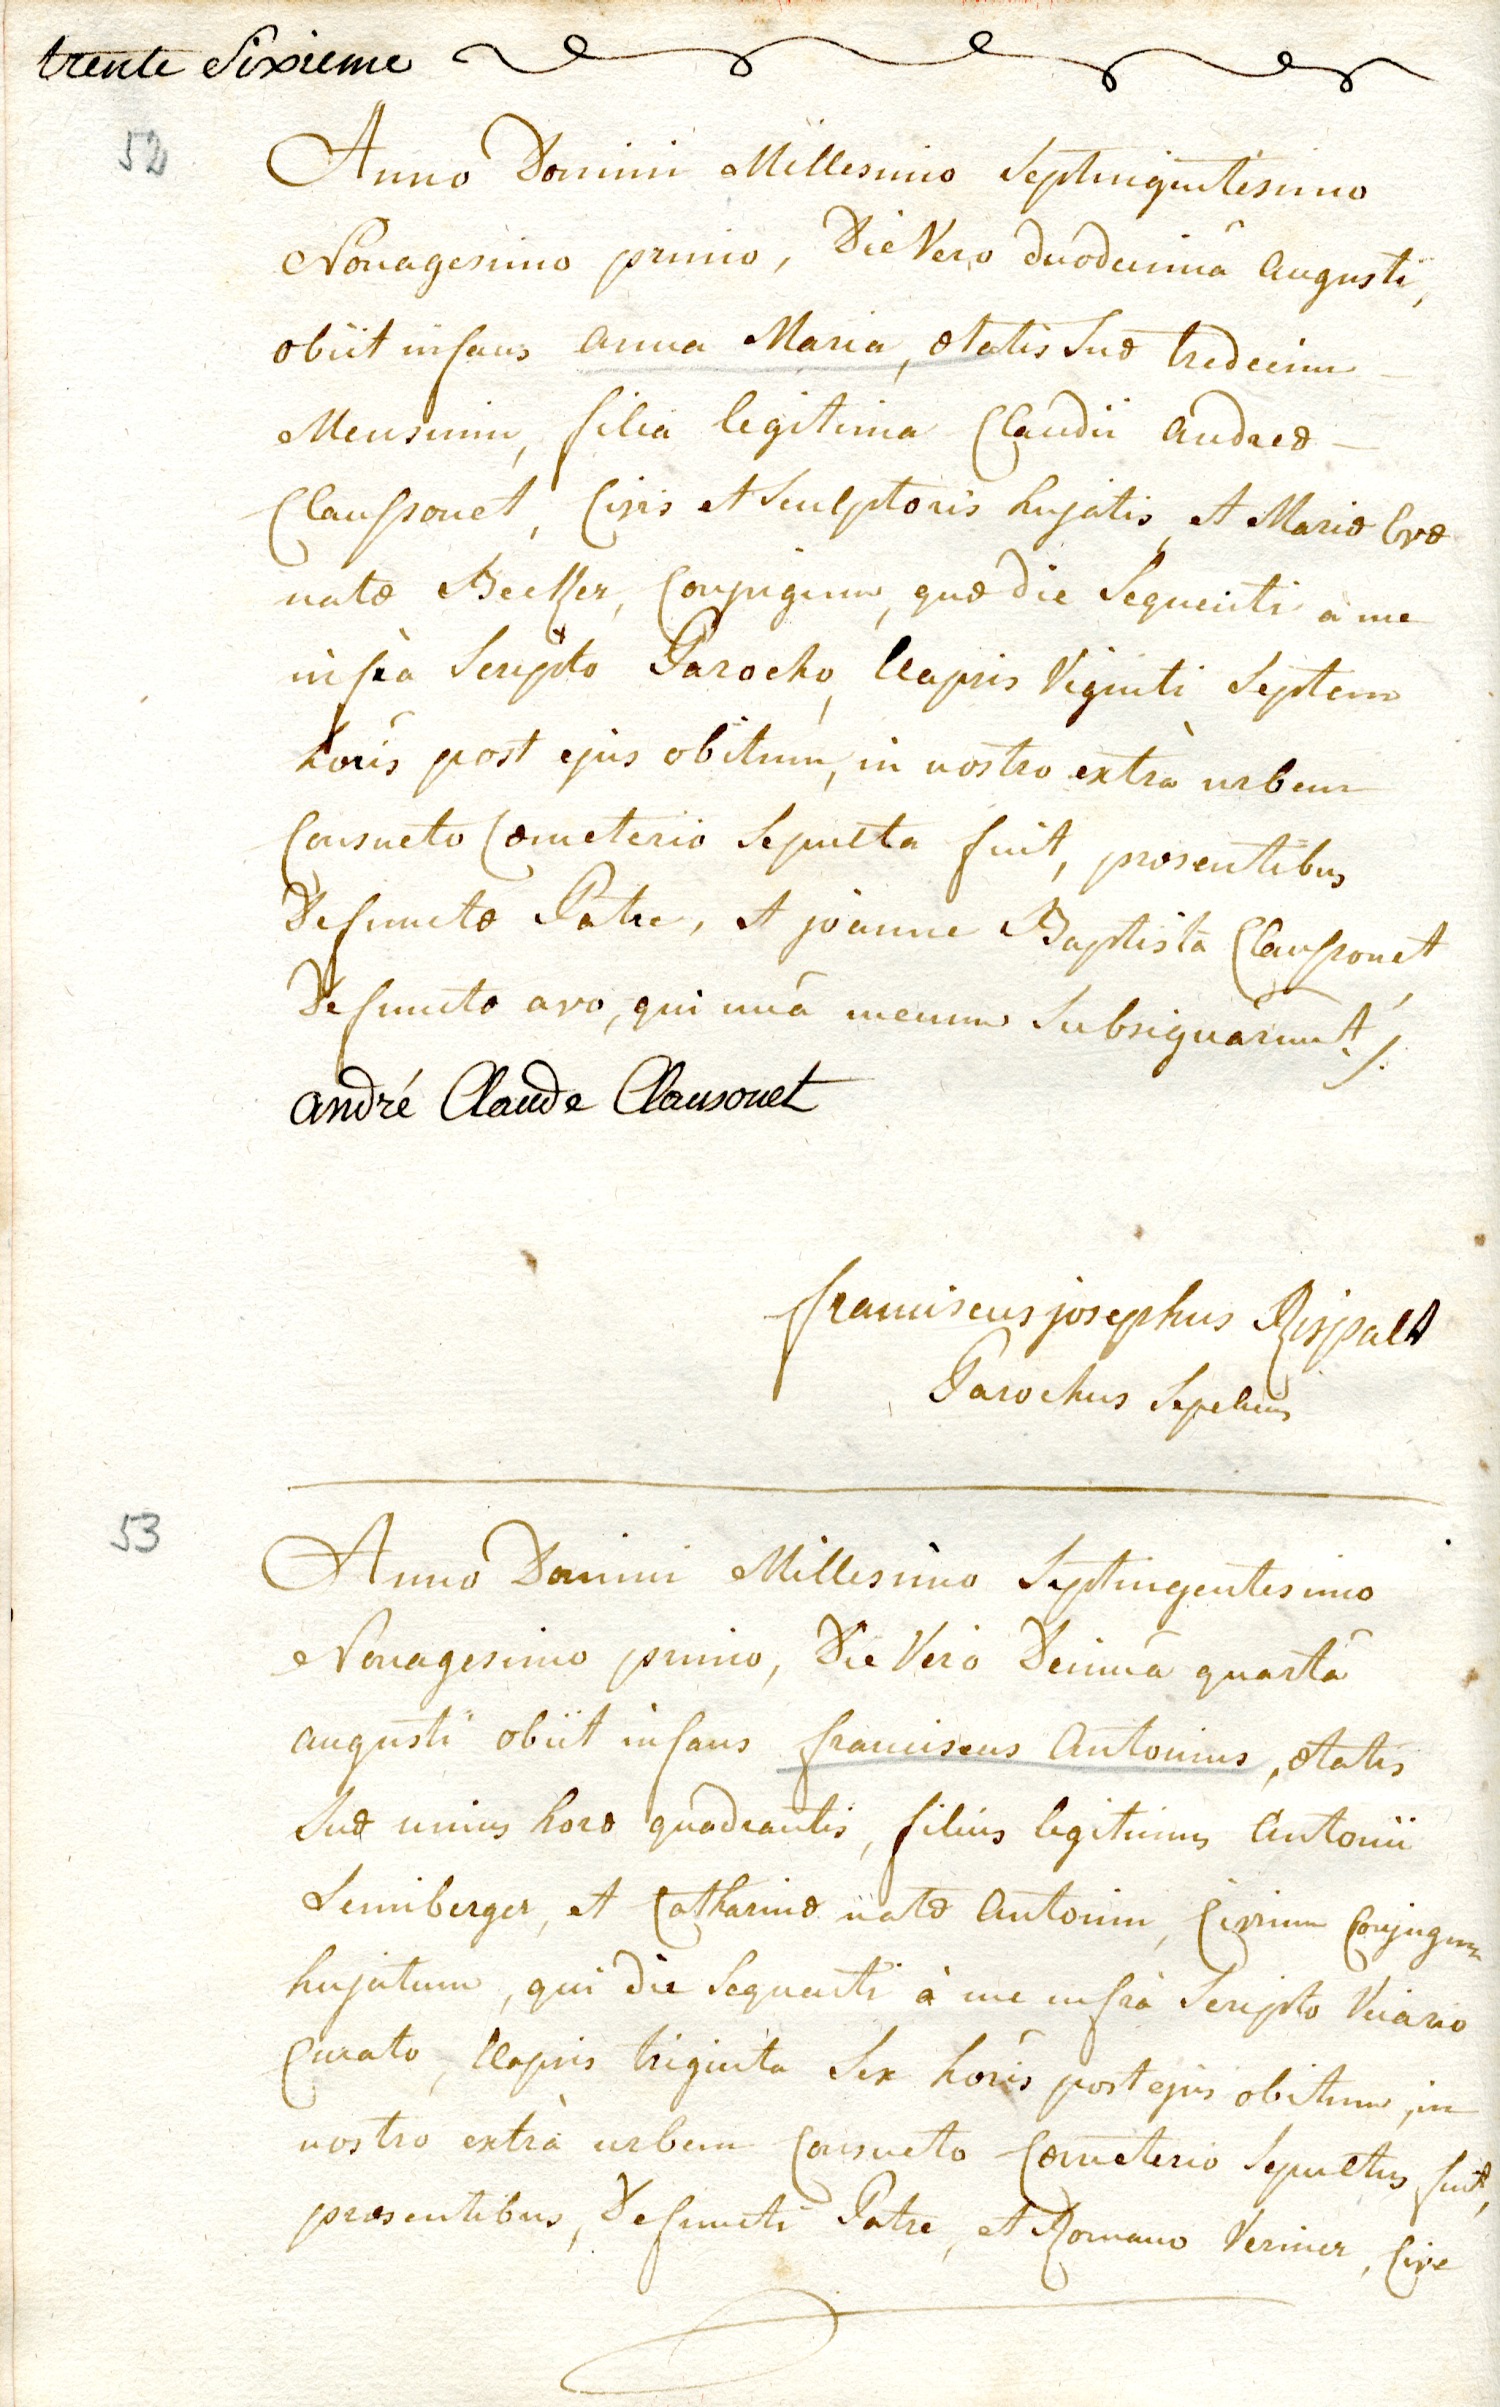 trente Sixieme
52
Anno Domini Millesimo Septingentesimo
Nonagesimo primo, Die Vero duodecimâ augusti,
obiit infans anna Maria, ætatis Suæ tredecim
Mensium, filia legitima Claudii andreæ
Claussonet, Civis et Sculptoris hujatis, et Mariæ Evæ
natæ Becker, Conjugum, quæ die Sequenti a me
infrà Scripto Parocho, Elapsis Viginti Septem
horis post ejus obitum, in nostro extrà urbem
Consueto Cœmeterio Sepulta fuit, præsentibus
Defunctæ Patre, et joanne Baptista Claussonet
Defunctæ avo, qui unâ mecum Subsignârunt ./.
andré Claude Clausonet
franciscus josephus Rispalt
Parochus Sepeliens
53
Anno Domini Millesimo Septingentesimo
Nonagesimo primo, Die Vero Decimâ quartâ
augusti obiit infans franciscus Antonius, ætatis
Suæ unius horæ quadrantis, filius legitimus Antonii
Lemiberger, et Catharinæ natæ Antonin, Civium Conjugum
hujatum, qui die Sequenti à me infrà Scripto Vicario
Curato, Elapsis triginta Sex horis post ejus obitum, in
nostro extrà urbem Consueto Cœmeterio Sepultus fuit,
præsentibus, Defuncti Patre, et Romano Veriner, Cive